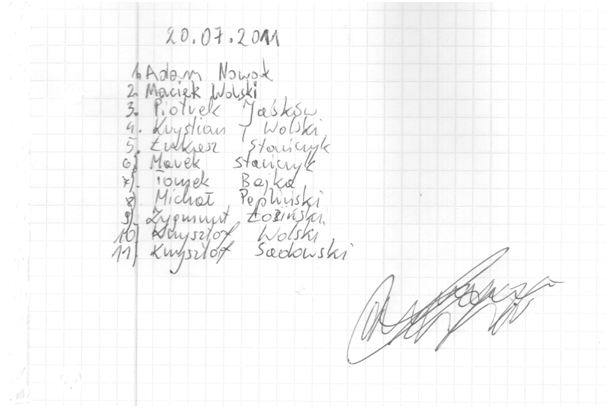 20.07.2011
1. Adam Nowak
2. Maciek Wolski
3. Piotrek Jaśków
4. Krystian Wolski
5. Łukasz Stańczyk
6) Marek Stańczyk
7). Tomek Bajka
8) Michał Pepliński
9). Zygmunt Łoziński
10) Krzysztof Wolski
11) Krzysztof Sadowski